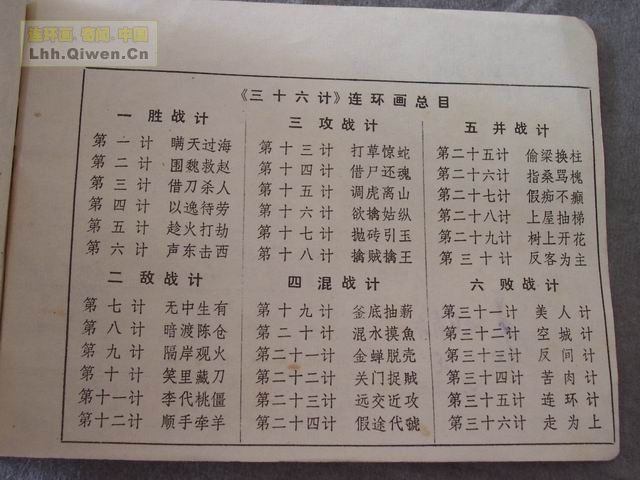 连环画.奇闻.中国
Lhh.Qiwen.Cn
《三十六计》连环画总目
一 胜战计
第一计 瞒天过海
第二计 围魏救赵
第三计 借刀杀人
第四计 以逸待劳
第五计 趁火打劫
第六计 声东击西
二 敌战计
第七计 无中生有
第八计 暗渡陈仓
第九计 隔岸观火
第十计 笑里藏刀
第十一计 李代桃僵
第十二计 顺手牵羊
三 攻战计
第十三计 打草惊蛇
第十四计 借尸还魂
第十五计 调虎离山
第十六计 欲擒姑纵
第十七计 抛砖引玉
第十八计 擒贼擒王
四 混战计
第十九计 釜底抽薪
第二十计 混水摸魚
第二十一计 金蝉脱壳
第二十二计 关门捉贼
第二十三计 远交近攻
第二十四计 假途伐虢
五 并战计
第二十五计 偷梁换柱
第二十六计 指桑骂槐
第二十七计 假痴不癫
第二十八计 上屋抽梯
第二十九计 树上开花
第三十计 反客为主
六 败战计
第三十一计 美人计
第三十二计 空城计
第三十三计 反间计
第三十四计 苦肉计
第三十五计 连环计
第三十六计 走为上